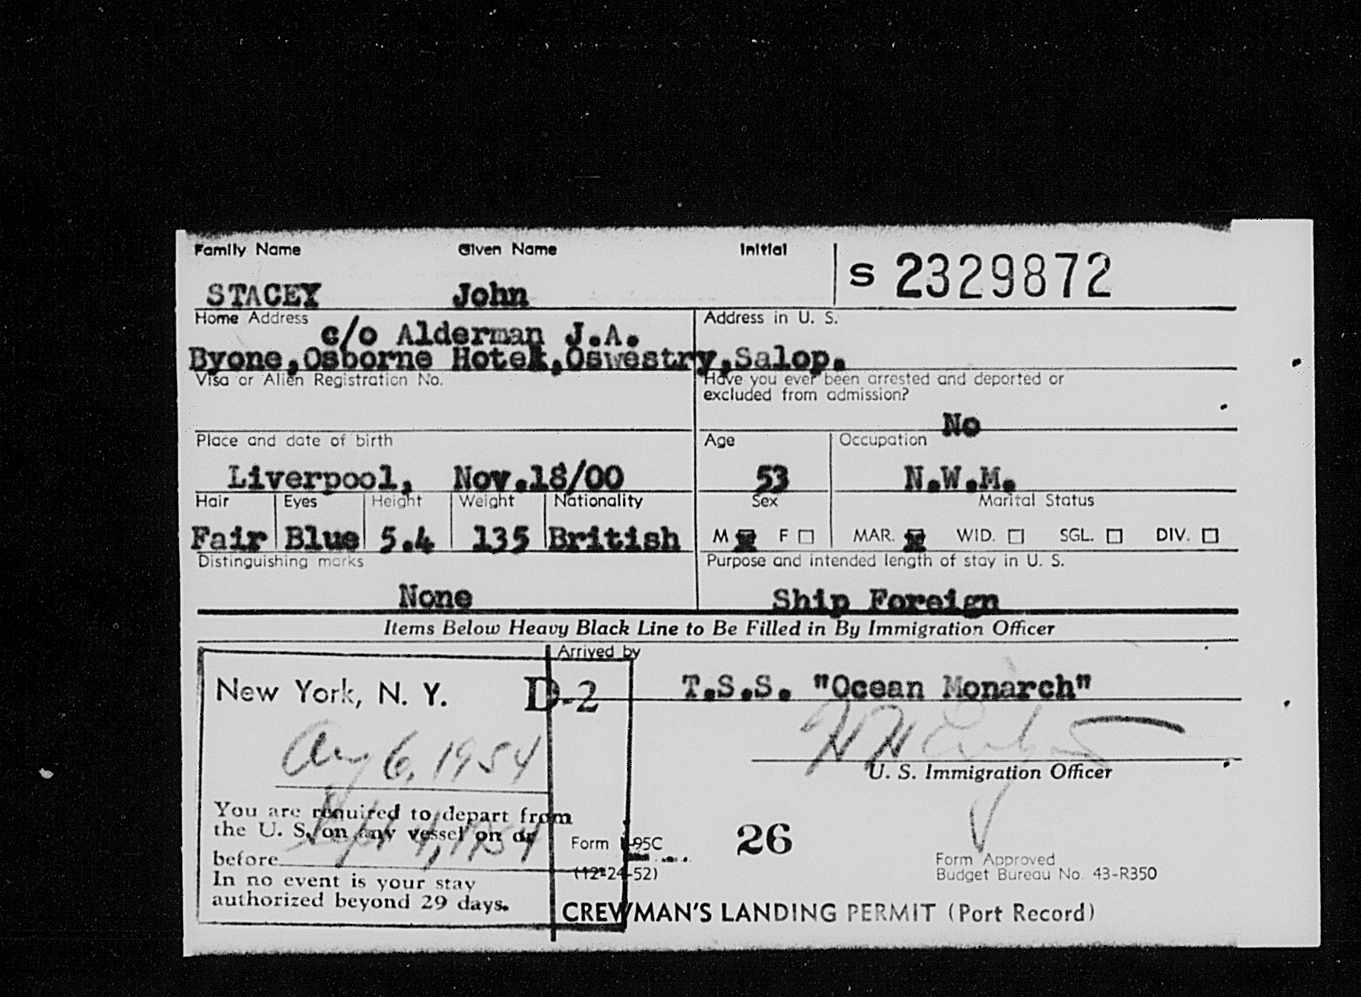 Family Name Given Name Initial
STACEY John S 2329872
Home Address Address in U. S.
c/o Alderman J.A.
Byone,Osborne Hotel,Oswestry,Salop.
Visa or Alien Registration No. Have you ever been arrested and deported or
excluded from admission?
No
Place and date of birth Age Occupation
Liverpool, Nov.18/00 53 N.W.M.
Hair Eyes Height Weight Nationality Sex Marital Status
Fair Blue 5.4 135 British M F MAR. WID. SGL. DIV.
Distinguishing marks Purpose and intended length of stay in U. S.
None Ship Foreign
Items Below Heavy Black Line to Be Filled in By Immigration Officer
Arrived by
New York, N. Y. D-2 T.S.S. "Ocean Monarch"
Aug 6, 1954
U. S. Immigration Officer
You are required to depart from
the U. S. on any vessel on or
before Sept 4, 1954
In no event is your stay
authorized beyond 29 days.
Form I-95C
(12-24-52)
26
Form Approved
Budget Bureau No. 43-R350
CREWMAN'S LANDING PERMIT (Port Record)